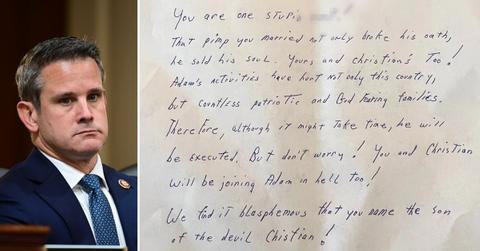 You are one stupid
That pimp you married not only broke his oath,
he sold his soul. Yours, and Christian's Too!
Adam's activities have hurt not only this country,
but countless patriotic and God fearing families.
Therefore, although it might Take Time, he will
be executed. But don't worry! You and Christian
will be joining Adam in hell too!
We find it blasphemous that you name the son
of the devil Chistian!